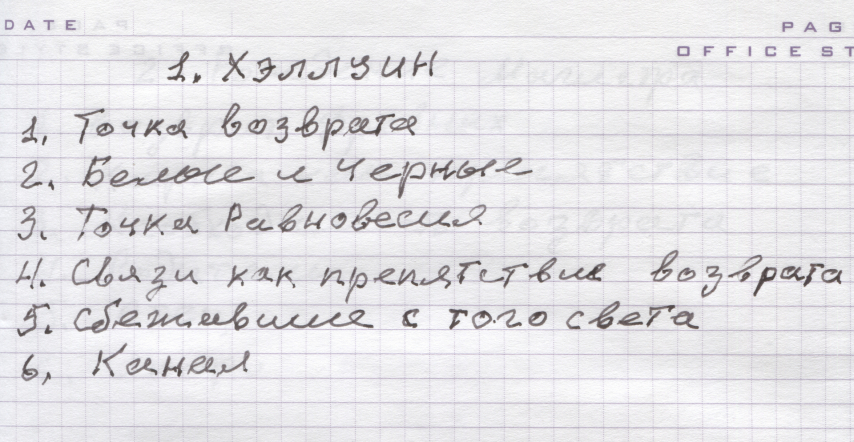 DATE
PAG
OFFICE ST
1. ХЭЛЛУИН
1. Точка возврата
2. Белые и Черные
3. Точка Равновесия
4. Связи как препятствие возврата
5. Сбежавшие с того света
6. Канал